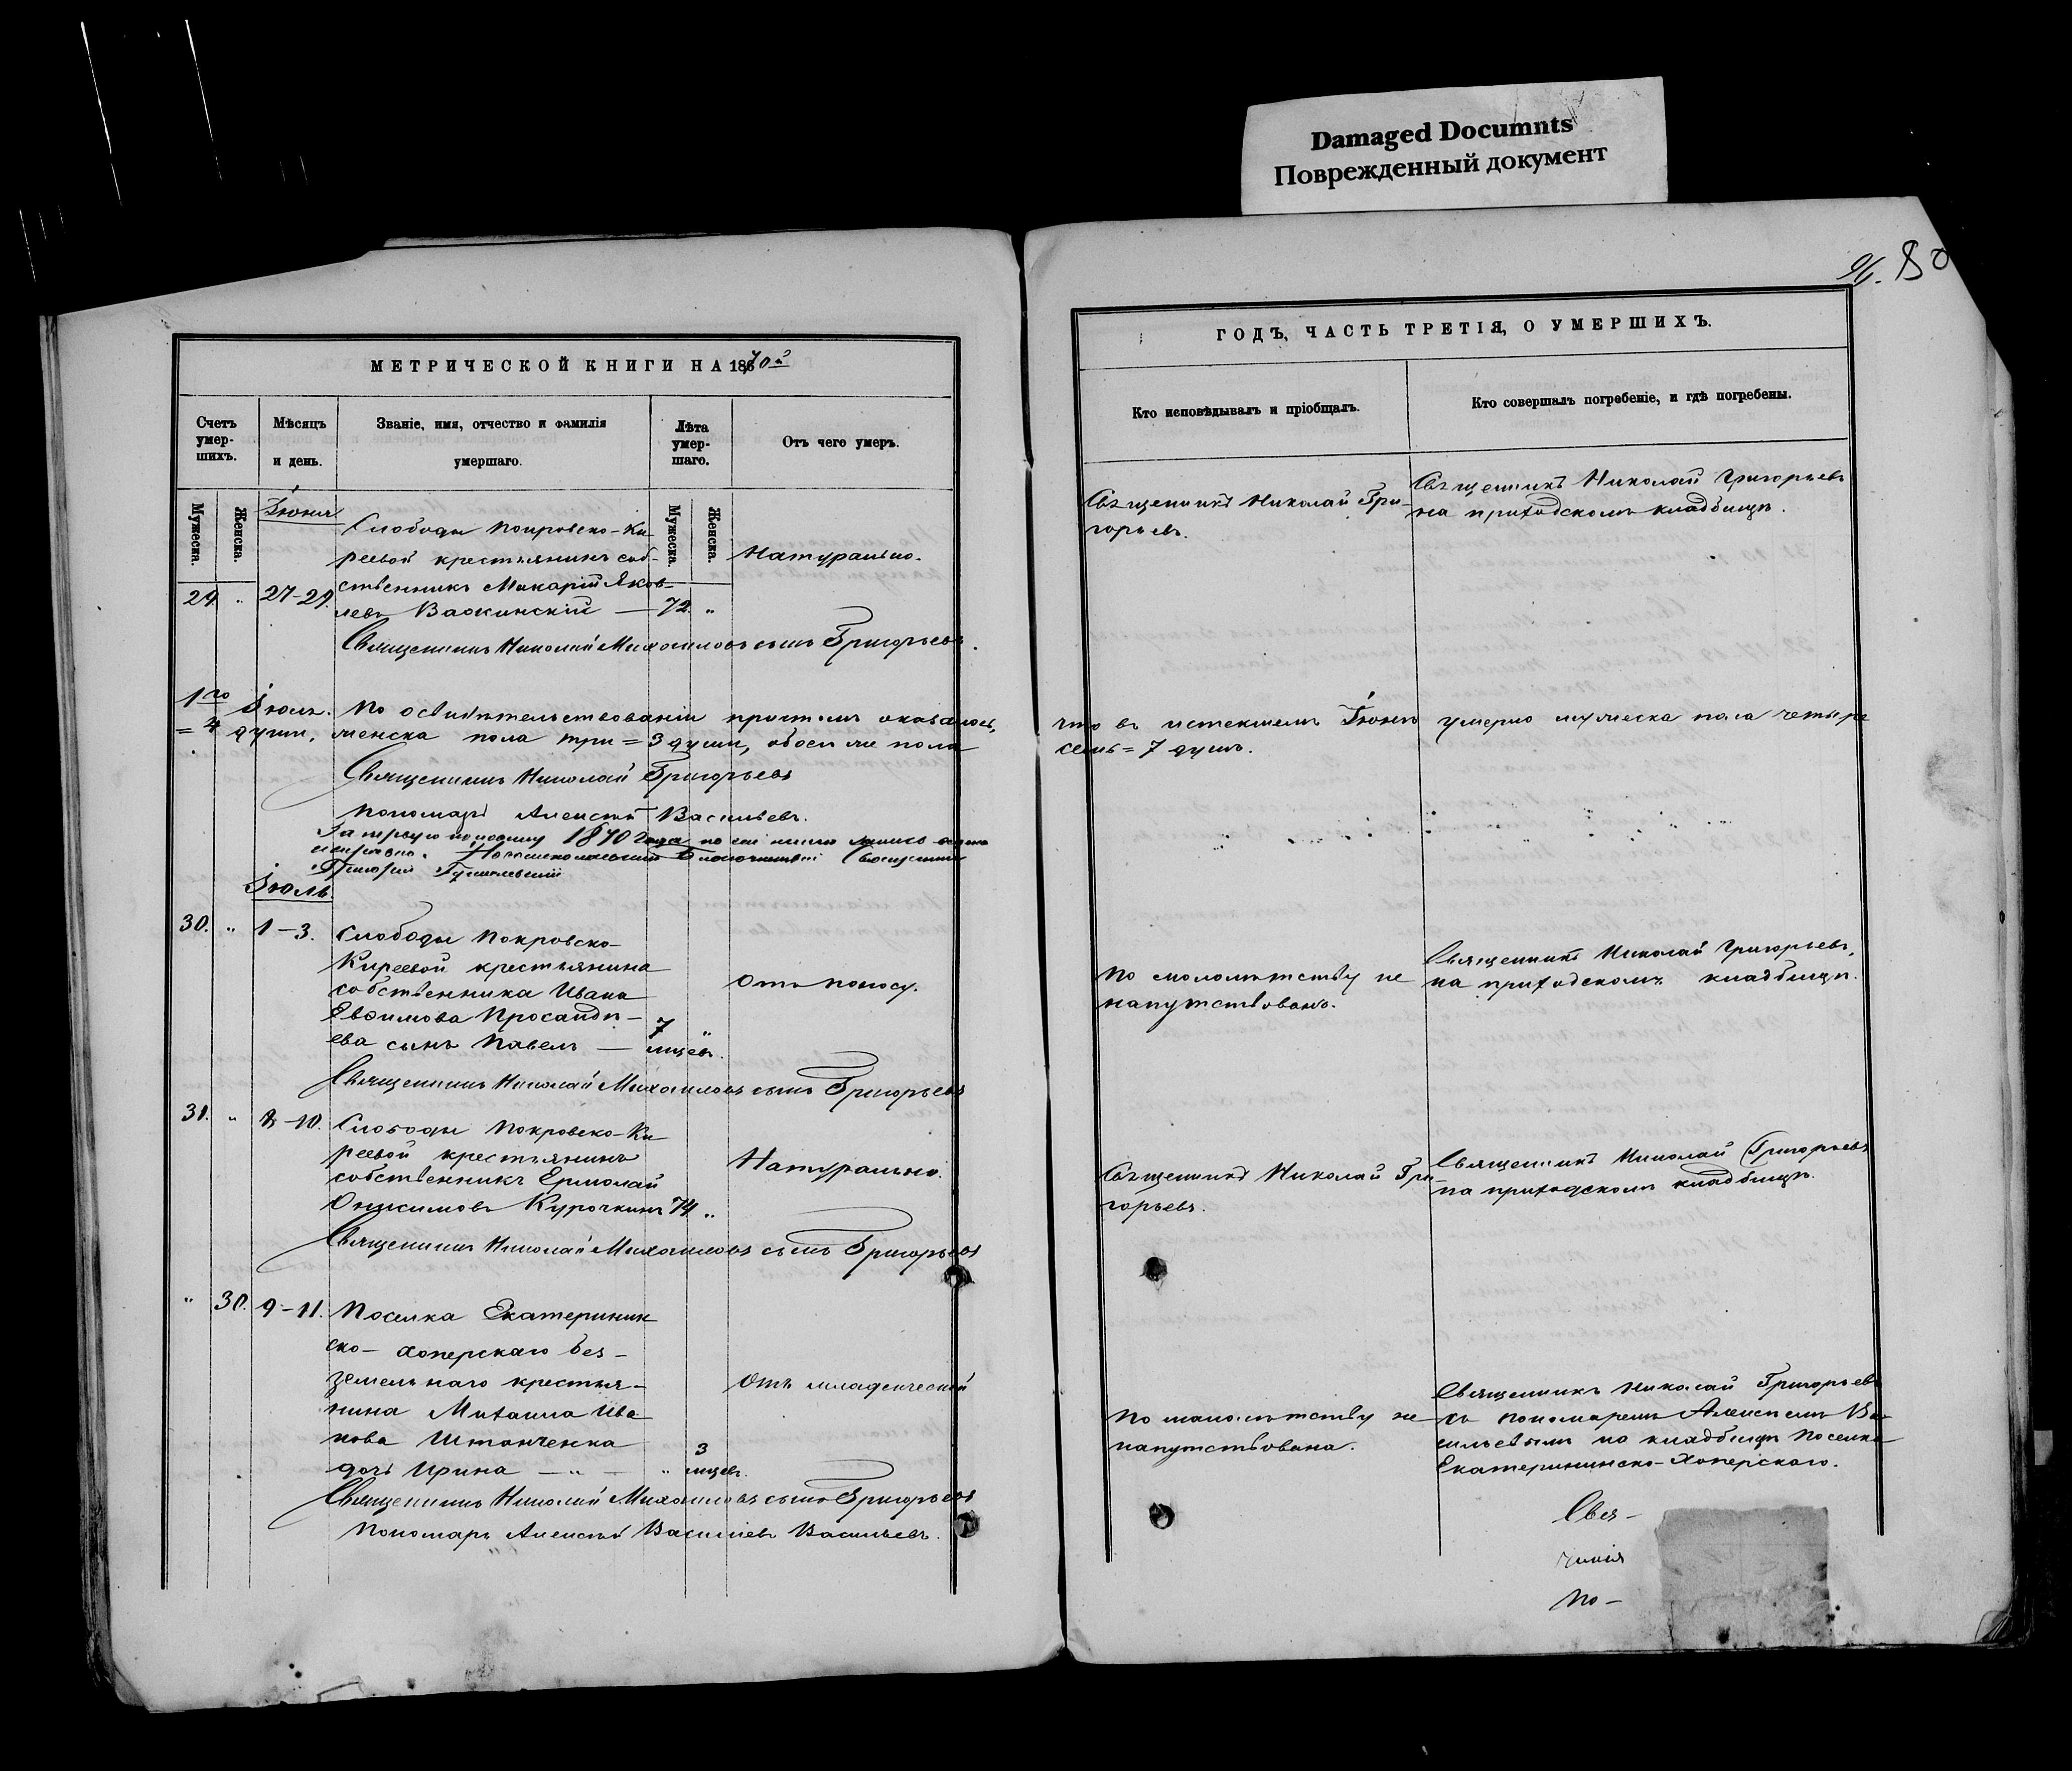 Damaged Documnts
Поврежденный документ
80
МЕТРИЧЕСКОЙ КНИГИ НА 1870й
Счетъ умер-шихъ.
Мѣсяцъ и день.
Званіе, имя, отчество и фамилія умершаго.
Лѣта умер-шаго.
Отъ чего умеръ.
Мужеска.
Женска.
Мужеска.
Женска.
Іюня
Слободы Покровско-Ки-
реевой крестьянинъ соб-
ственникъ Макарій Яков-
левъ Васкинскій — 72 "
29 " 27-29.
Натурально.
Священникъ Николай Михаиловъ сынъ Григорьевъ.
1го Іюля. По освидѣтельствованіи причтомъ оказалось,
= 4 души, женска пола три = 3 души, обоего же пола
Священникъ Николай Григорьевъ
Пономарь Алексѣй Васильевъ.
За первую половину 1870 года по сей книге
исправно. Благочинный Священникъ
Григорій
Іюль.
30. " 1-3. Слободы Покровско-
Киреевой крестьянина
собственника Ивана
Евѳимова Просандѣ-
ева сынъ Павелъ — 7 мцевъ. "
Отъ поносу.
Священникъ Николай Михаиловъ сынъ Григорьевъ
31. " 8-10. Слободы Покровско-Ки
реевой крестьянинъ
собственникъ Ермолай
Онисимовъ Курочкинъ 74 "
Натурально.
Священникъ Николай Михаиловъ сынъ Григорьевъ
" 30. 9-11. Поселка Екатеринин
ско-Хоперскаго без-
земельнаго крестья-
нина Михаила Ива
нова Штанченка
дочь Ирина — " — " 3 мцевъ.
Отъ младенческой
Священникъ Николай Михаиловъ сынъ Григорьевъ
Пономарь Алексѣй Василіевъ Васильевъ.
ГОДЪ, ЧАСТЬ ТРЕТІЯ, О УМЕРШИХЪ.
Кто исповѣдывалъ и пріобщалъ.
Кто совершалъ погребеніе, и гдѣ погребены.
Священникъ Николай Гри-
горьевъ.
Священникъ Николай Григорьевъ
на приходскомъ кладбищѣ.
что въ истекшемъ Іюнѣ умерло мужеска пола четыре
семь = 7 душъ.
По малолѣтству не
напутствованъ.
Священникъ Николай Григорьевъ,
на приходскомъ кладбищѣ.
Священникъ Николай Гри-
горьевъ.
Священникъ Николай Григорьевъ
на приходскомъ кладбищѣ.
По малолѣтству не
напутствована.
Священникъ Николай Григорьевъ
съ пономаремъ Алексѣемъ Ва-
сильевымъ на кладбищѣ поселка
Екатерининско-Хоперскаго.
Свя-
По-